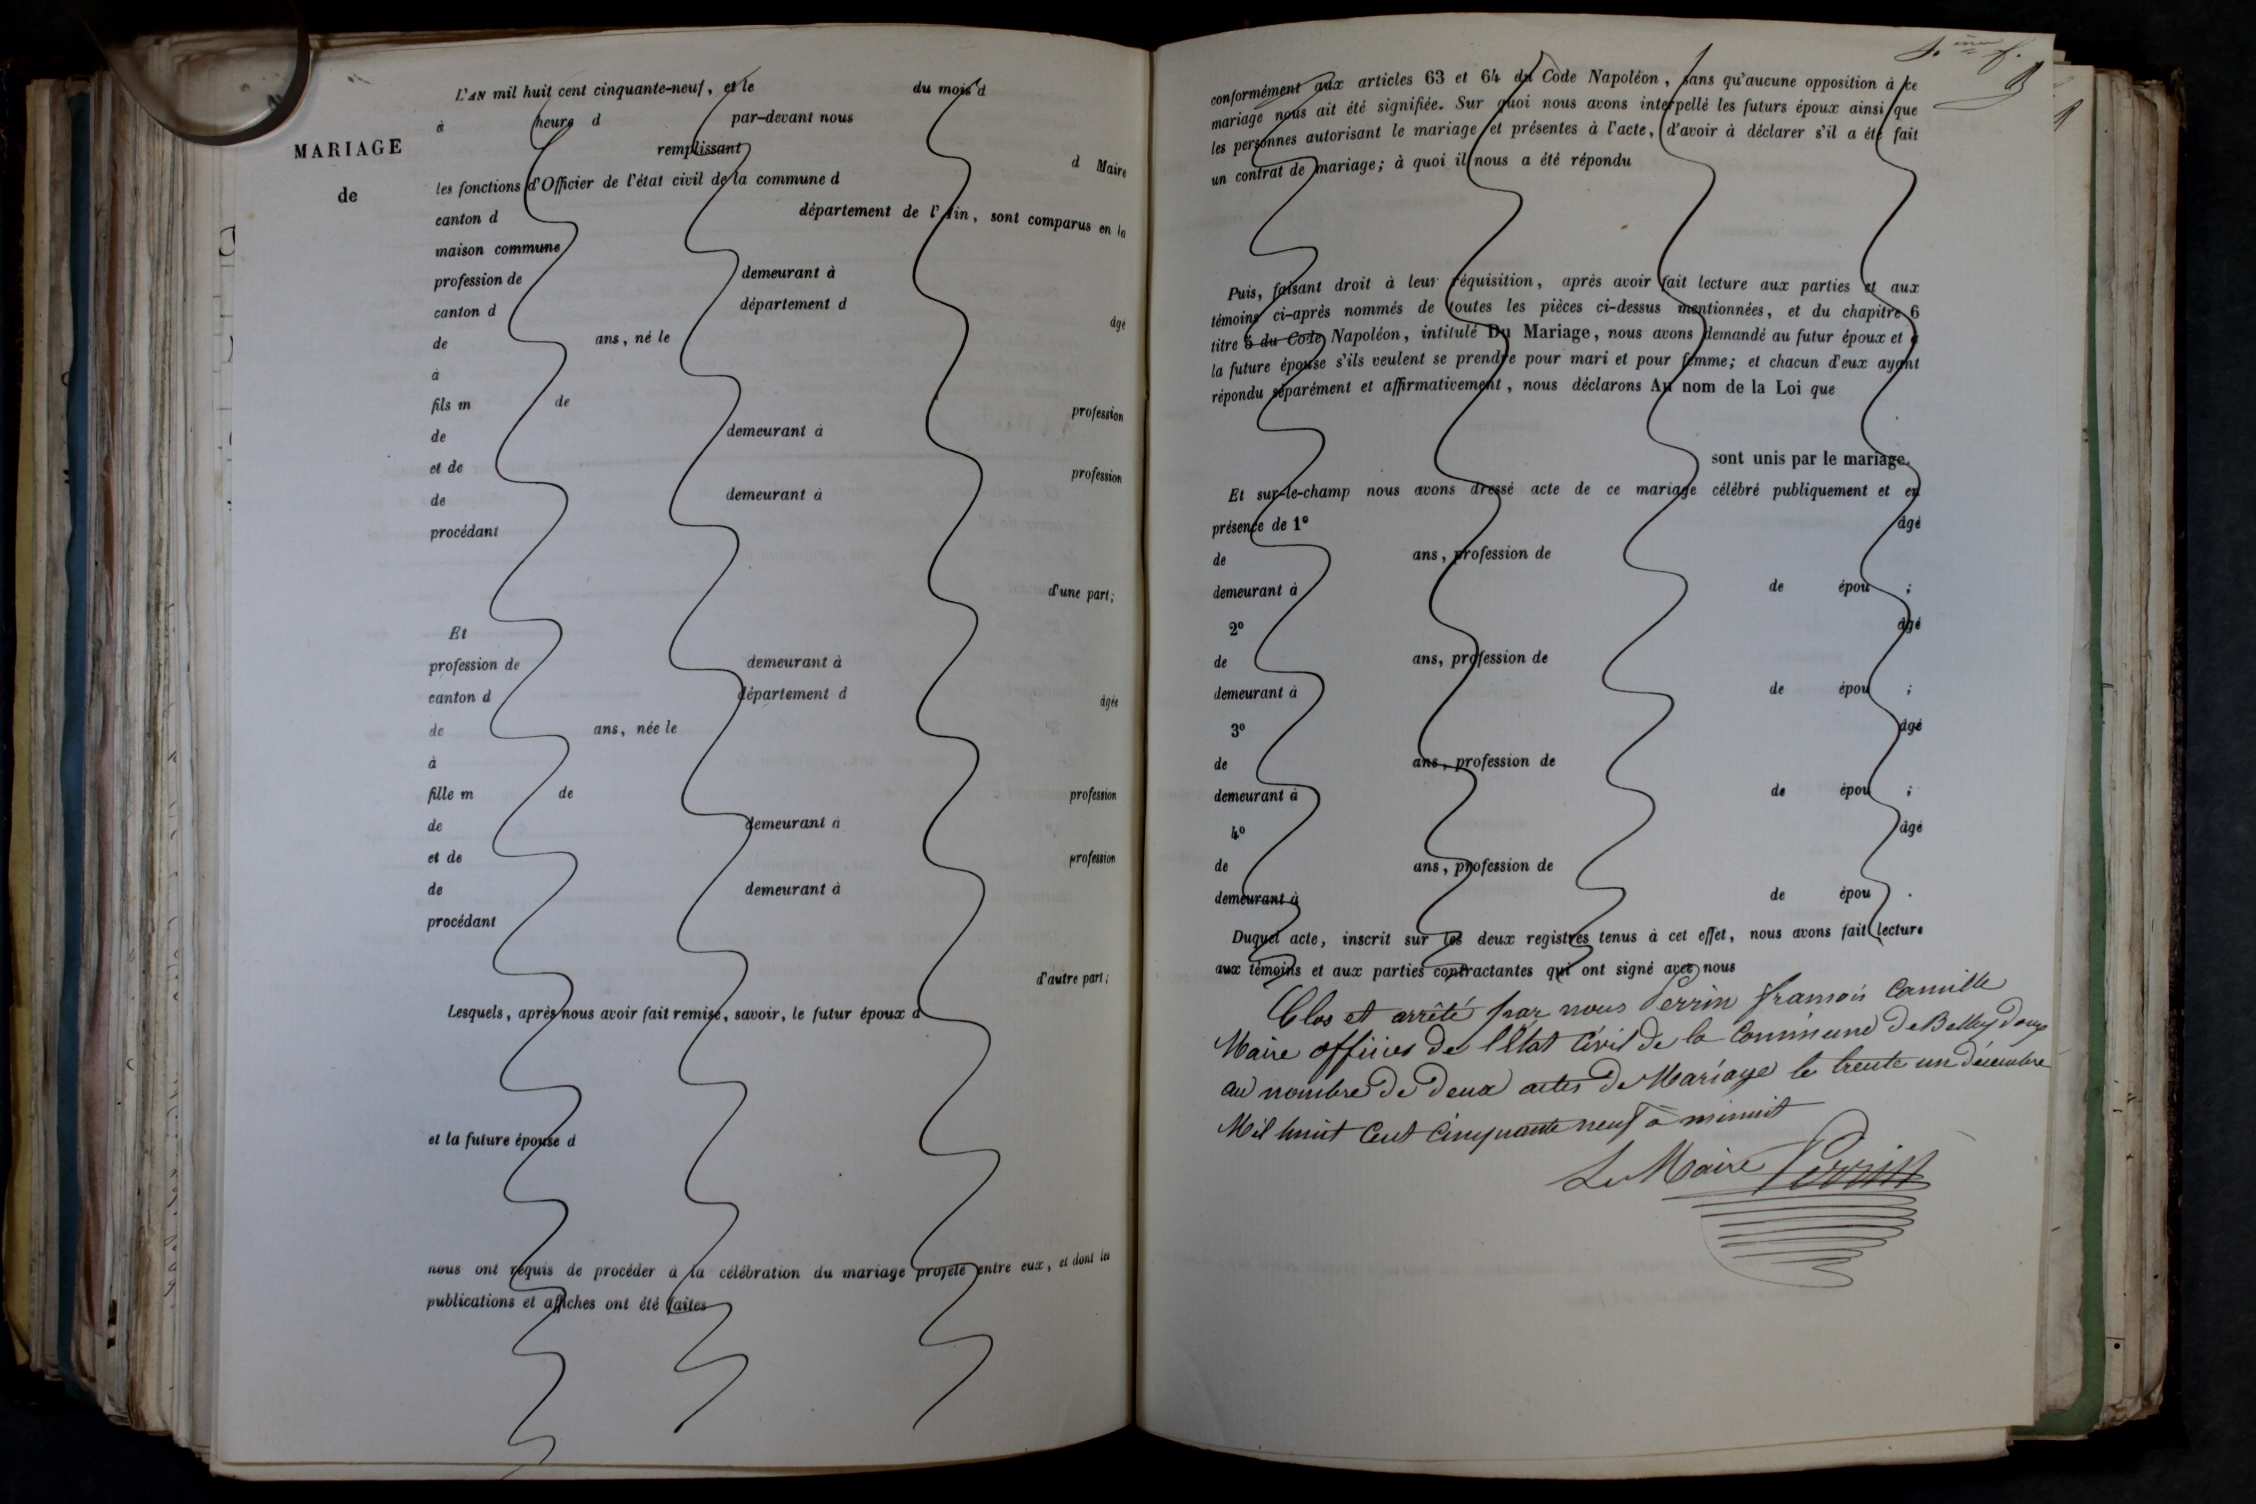 MARIAGE
de
L'AN mil huit cent cinquante-neuf, et le du mois d
à heure d par-devant nous
remplissant
d Maire
les fonctions d'Officier de l'état civil de la commune d
canton d département de l'Ain, sont comparus en la
maison commune
profession de demeurant à
canton d département d
âgé
de ans, né le
à
fils m de profession
de demeurant à
et de profession
de demeurant à
procédant
d'une part;
Et
profession de demeurant à
canton d département d
âgée
de ans, née le
à
fille m de profession
de demeurant à
et de profession
de demeurant à
procédant
d'autre part;
Lesquels, après nous avoir fait remise, savoir, le futur époux d
et la future épouse d
nous ont requis de procéder à la célébration du mariage projeté entre eux, et dont les
publications et affiches ont été faites
conformément aux articles 63 et 64 du Code Napoléon, sans qu'aucune opposition à ce
mariage nous ait été signifiée. Sur quoi nous avons interpellé les futurs époux ainsi que
les personnes autorisant le mariage et présentes à l'acte, d'avoir à déclarer s'il a été fait
un contrat de mariage; à quoi il nous a été répondu
Puis, faisant droit à leur réquisition, après avoir fait lecture aux parties et aux
témoins ci-après nommés de toutes les pièces ci-dessus mentionnées, et du chapitre 6
titre 5 du Code Napoléon, intitulé Du Mariage, nous avons demandé au futur époux et à
la future épouse s'ils veulent se prendre pour mari et pour femme; et chacun d'eux ayant
répondu séparément et affirmativement, nous déclarons Au nom de la Loi que
sont unis par le mariage.
Et sur-le-champ nous avons dressé acte de ce mariage célébré publiquement et en
présence de 1º âgé
de ans, profession de
demeurant à de épou ;
2º âgé
de ans, profession de
demeurant à de épou ;
3º âgé
de ans, profession de
demeurant à de épou ;
4º âgé
de ans, profession de
demeurant à de épou .
Duquel acte, inscrit sur les deux registres tenus à cet effet, nous avons fait lecture
aux témoins et aux parties contractantes qui ont signé avec nous
Clos et arrêté par nous Perrin françois Camille
Maire officier de l'Etat Civil de la Commune De Belleydoux
au nombre De Deux actes De Mariage le trente un décembre
Mil huit Cent Cinquante neuf à minuit
Le Maire Perrin